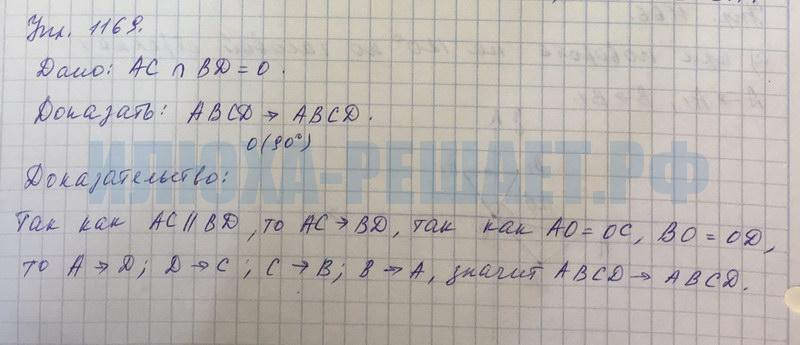 Упр. 1169.
Дано: AC ∩ BD = O.
Доказать: ABCD → ABCD.
O(90°)
ИЛЮХА-РЕШАЕТ.РФ
Доказательство:
Так как AC || BD, то AC → BD, так как AO = OC, BO = OD,
то A → D; D → C; C → B; B → A, значит ABCD → ABCD.